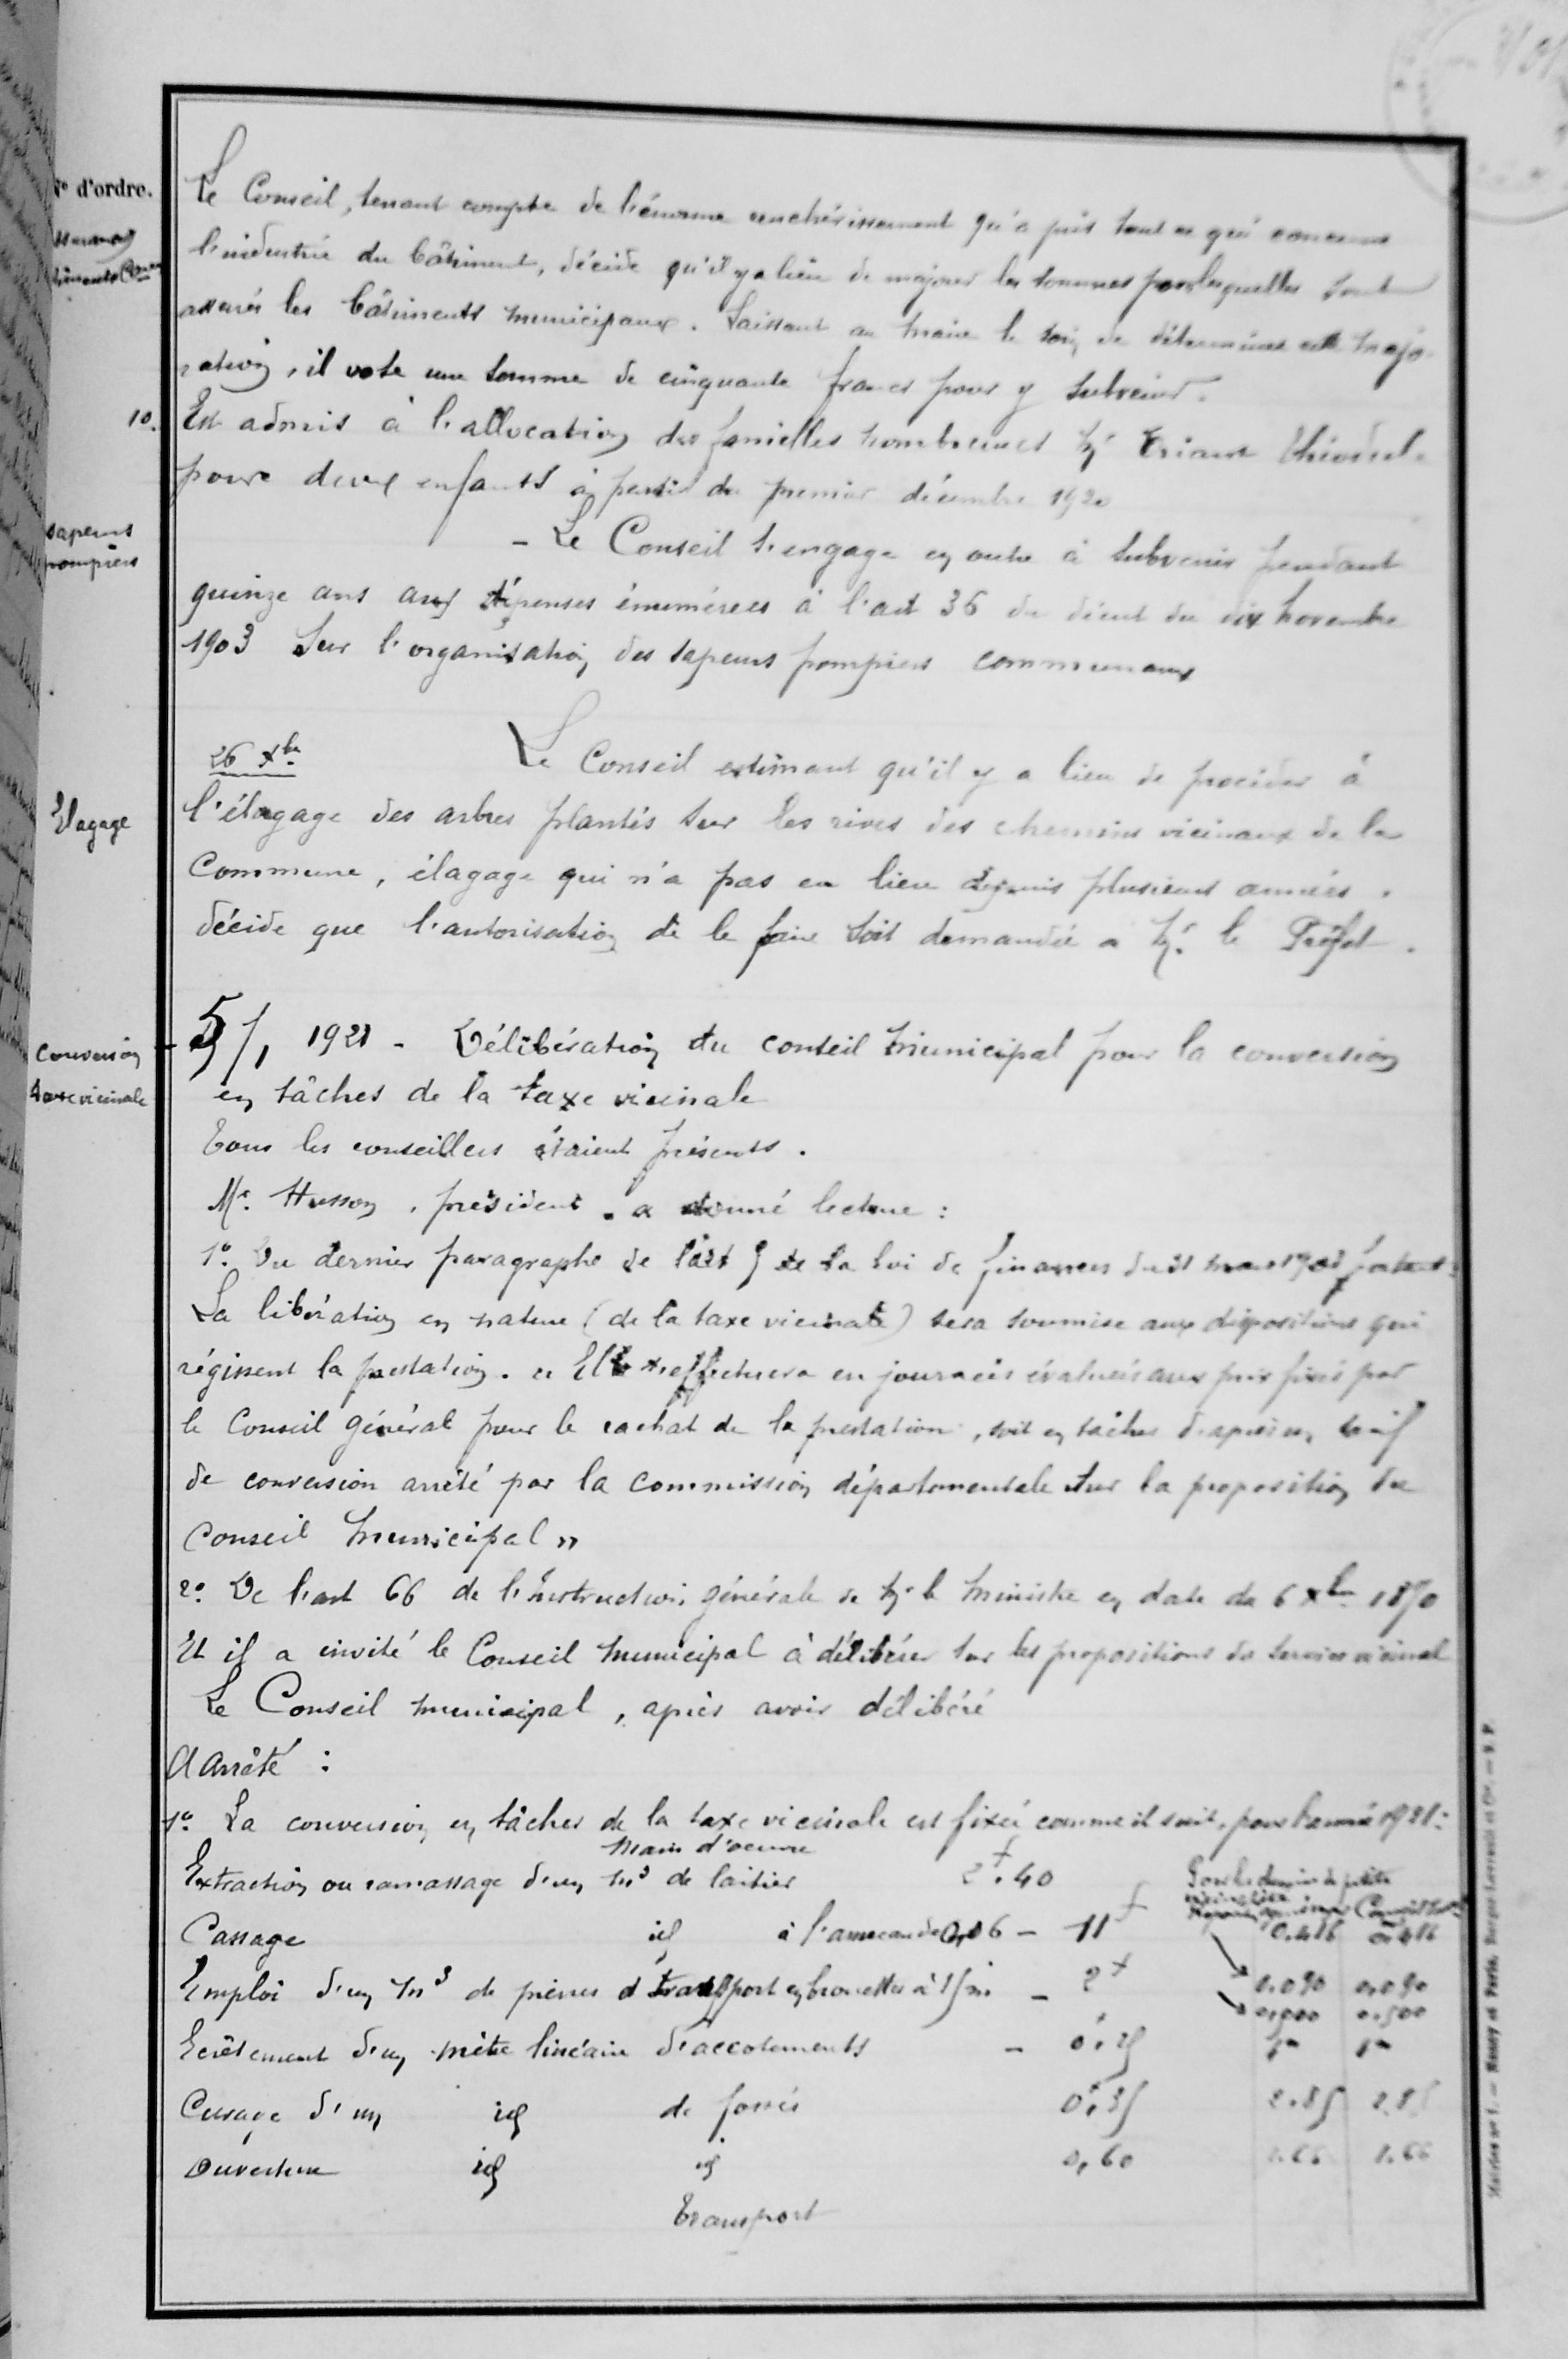 N° d'ordre.
Le Conseil, tenant compte de l'énorme renchérissement qu'a pris tout ce qui concerne
l'industrie du bâtiment, décide qu'il y a lieu de majorer les sommes pour lesquelles sont
assurés les bâtiments municipaux. Laissant au maire le soin de déterminer cette majo-
ration, il vote une somme de cinquante francs pour y subvenir.
10. Est admis à l'allocation des familles nombreuses Mr
pour deux enfants à partir du premier décembre 1920
sapeurs
pompiers
- Le Conseil s'engage en outre à subvenir pendant
quinze ans aux dépenses énumérées à l'art 36 du décret du dix novembre
1903 sur l'organisation des sapeurs pompiers communaux
26 Xbre
Le Conseil estimant qu'il y a lieu de procéder à
Elagage
l'élagage des arbres plantés sur les rives des chemins vicinaux de la
Commune, élagage qui n'a pas eu lieu depuis plusieurs années.
décide que l'autorisation de le faire soit demandée à Mr. le Préfet.
Conversion
taxe vicinale
- 5/1 1921 - Délibération du conseil municipal pour la conversion
en tâches de la taxe vicinale
Tous les conseillers étaient présents.
Mr. Husson, président, a donné lecture :
1° Du dernier paragraphe de l'art 5 de la loi de finances du 31 mars 1903 portant :
La libération en nature (de la taxe vicinale) sera soumise aux dispositions qui
régissent la prestation. " Elle s'effectuera en journées évaluées aux prix fixés par
le Conseil général pour le rachat de la prestation, soit en tâches d'après un tarif
de conversion arrêté par la commission départementale sur la proposition du
Conseil municipal "
2° De l'art 66 de l'Instruction générale de Mr le Ministre en date du 6 Xbre 1870
Et il a invité le Conseil municipal à délibérer sur les propositions du service vicinal
Le Conseil municipal, après avoir délibéré
A arrêté :
1° La conversion en tâches de la taxe vicinale est fixée comme il suit, pour l'année 1921 :
Main d'oeuvre
Extraction ou ramassage d'un m3 de laitier 2f.40
Pour les chemins de petite
Cassage id à l'anneau de 0,06 - 11f 0.416 0.416
Emploi d'un m3 de pierres et transport en brouettes à - 2f 0.090 0,090
0.500
Ecrêtement d'un mètre linéaire d'accotements - 0f,25
Curage d'un id de fossés 0f,35 2.85 2.85
Ouverture id id 0,60 1.66 1.66
Transport